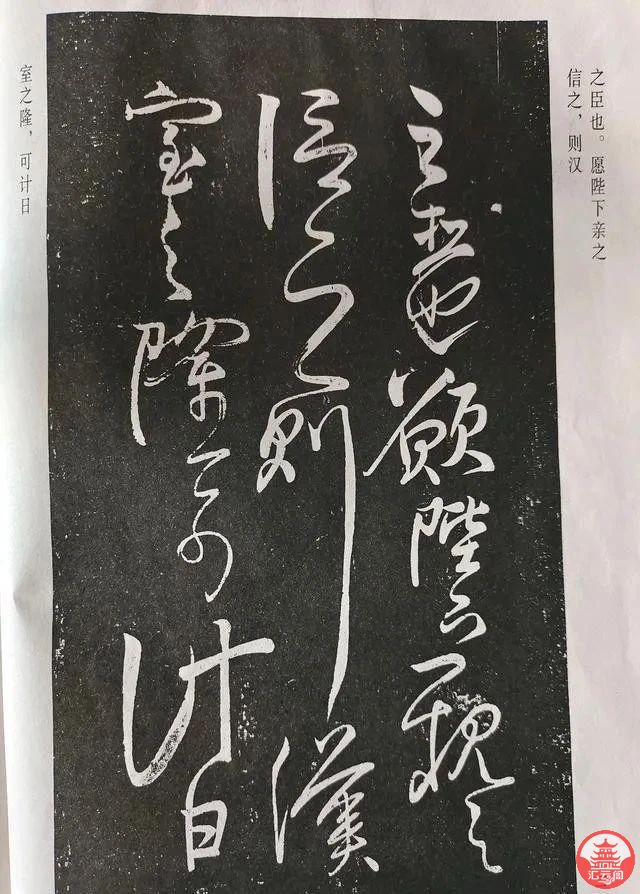 之臣也。愿陛下亲之
信之，则汉
之臣也願陛下親之
信之則漢
室之隆可計日
室之隆，可计日
汇云阁